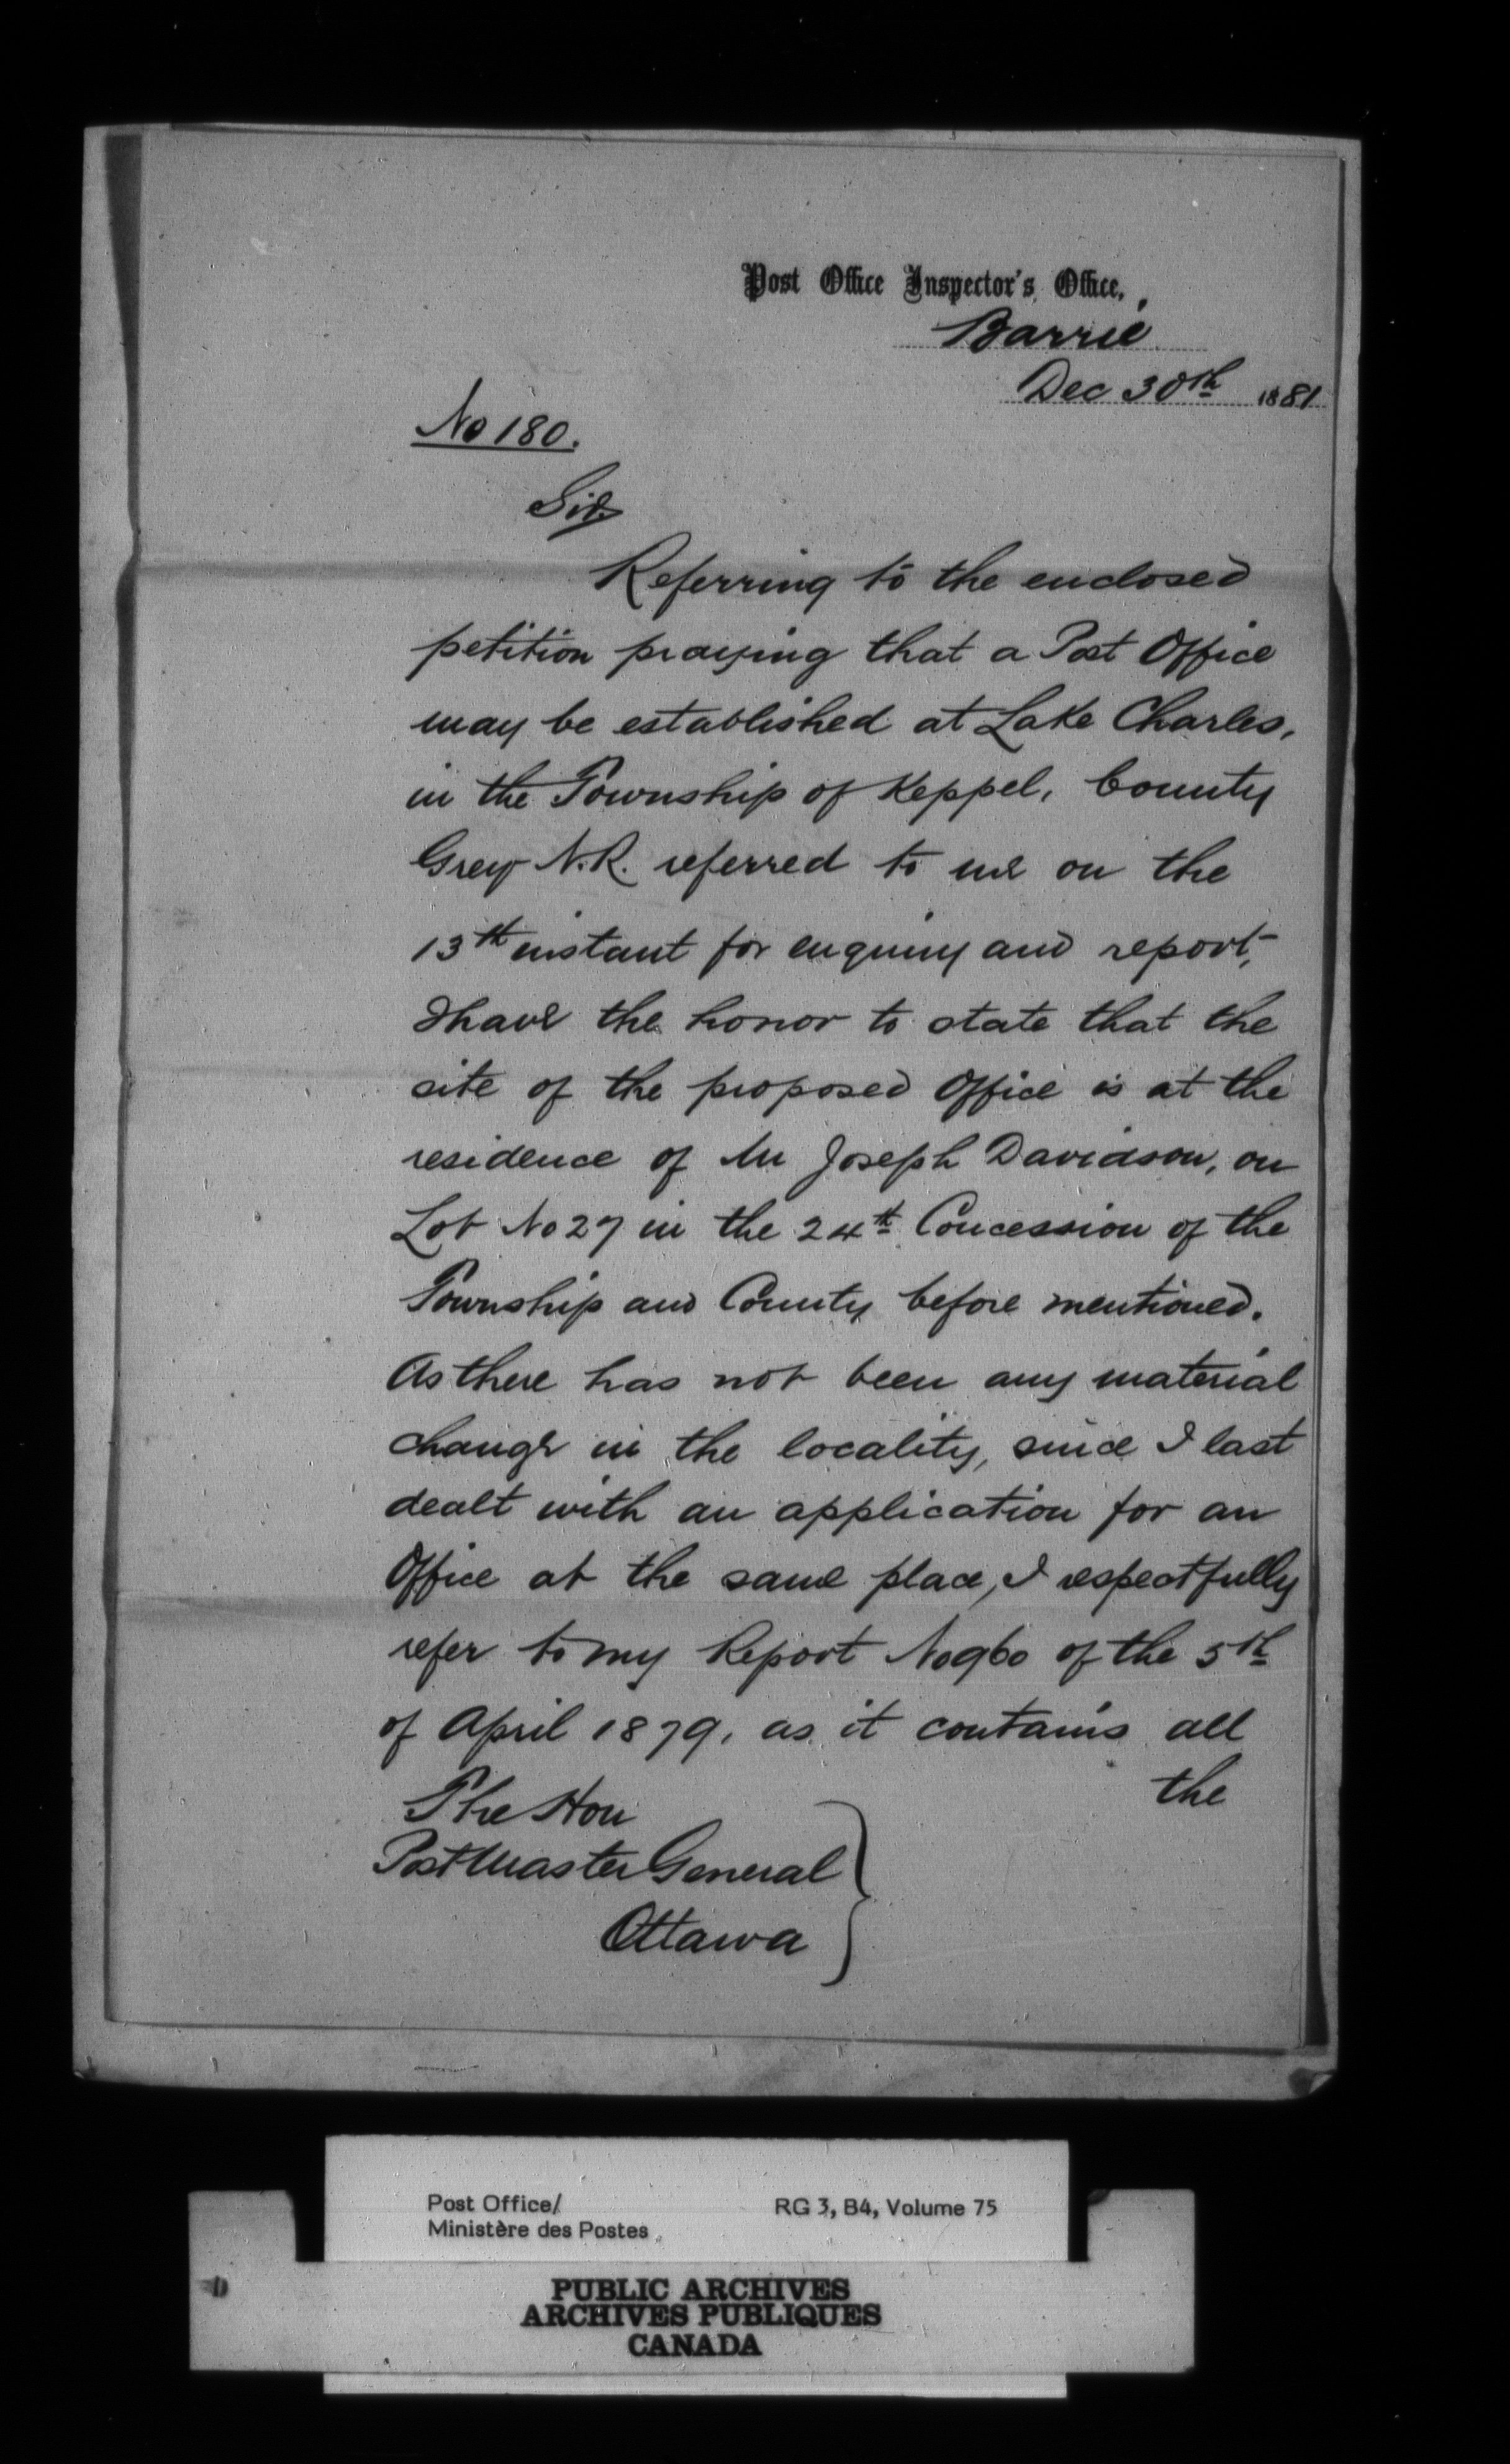 Post Office Inspector's Office,
Barrie
Dec 30th 1881
No 180.
Sir
Referring to the enclosed
petition praying that a Post Office
may be established at Lake Charles,
in the Township of Keppel, County
Grey N.R. referred to me on the
13th instant for enquiry and report,
I have the honor to state that the
site of the proposed Office is at the
residence of Mr Joseph Davidson, on
Lot No 27 in the 24th Concession of the
Township and County before mentioned.
As there has not been any material
change in the locality, since I last
dealt with an application for an
Office at the same place, I respectfully
refer to my Report No 960 of the 5th
of April 1879, as it contains all
the
The Hon
Post Master General
Ottawa
Post Office/
Ministère des Postes
RG 3, B4, Volume 75
PUBLIC ARCHIVES
ARCHIVES PUBLIQUES
CANADA